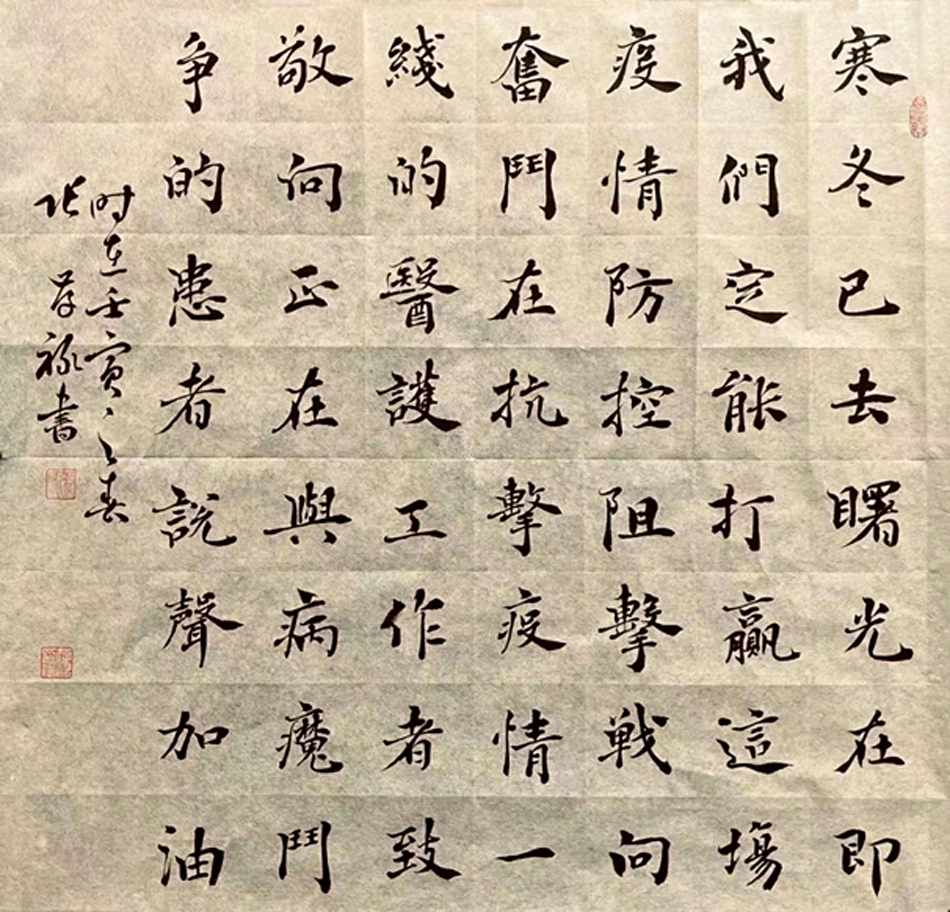 寒冬已去曙光在即
我們定能打贏這場
疫情防控阻擊戰向
奮鬥在抗擊疫情一
綫的醫護工作者致
敬向正在與病魔鬥
争的患者説聲加油
时在壬寅之春
书